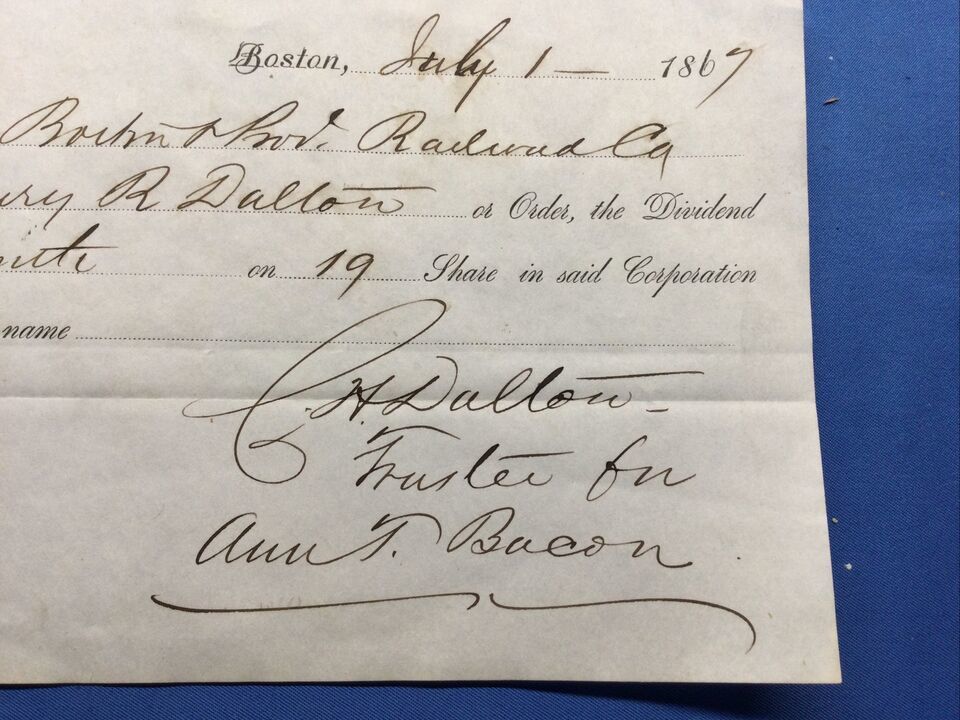 Boston, July 1 — 1867
Boston & Prov. Railroad Co
ury R Dalton or Order, the Dividend
on 19 Share in said Corporation
name
C. H. Dalton
Trustee for
Ann T. Bacon